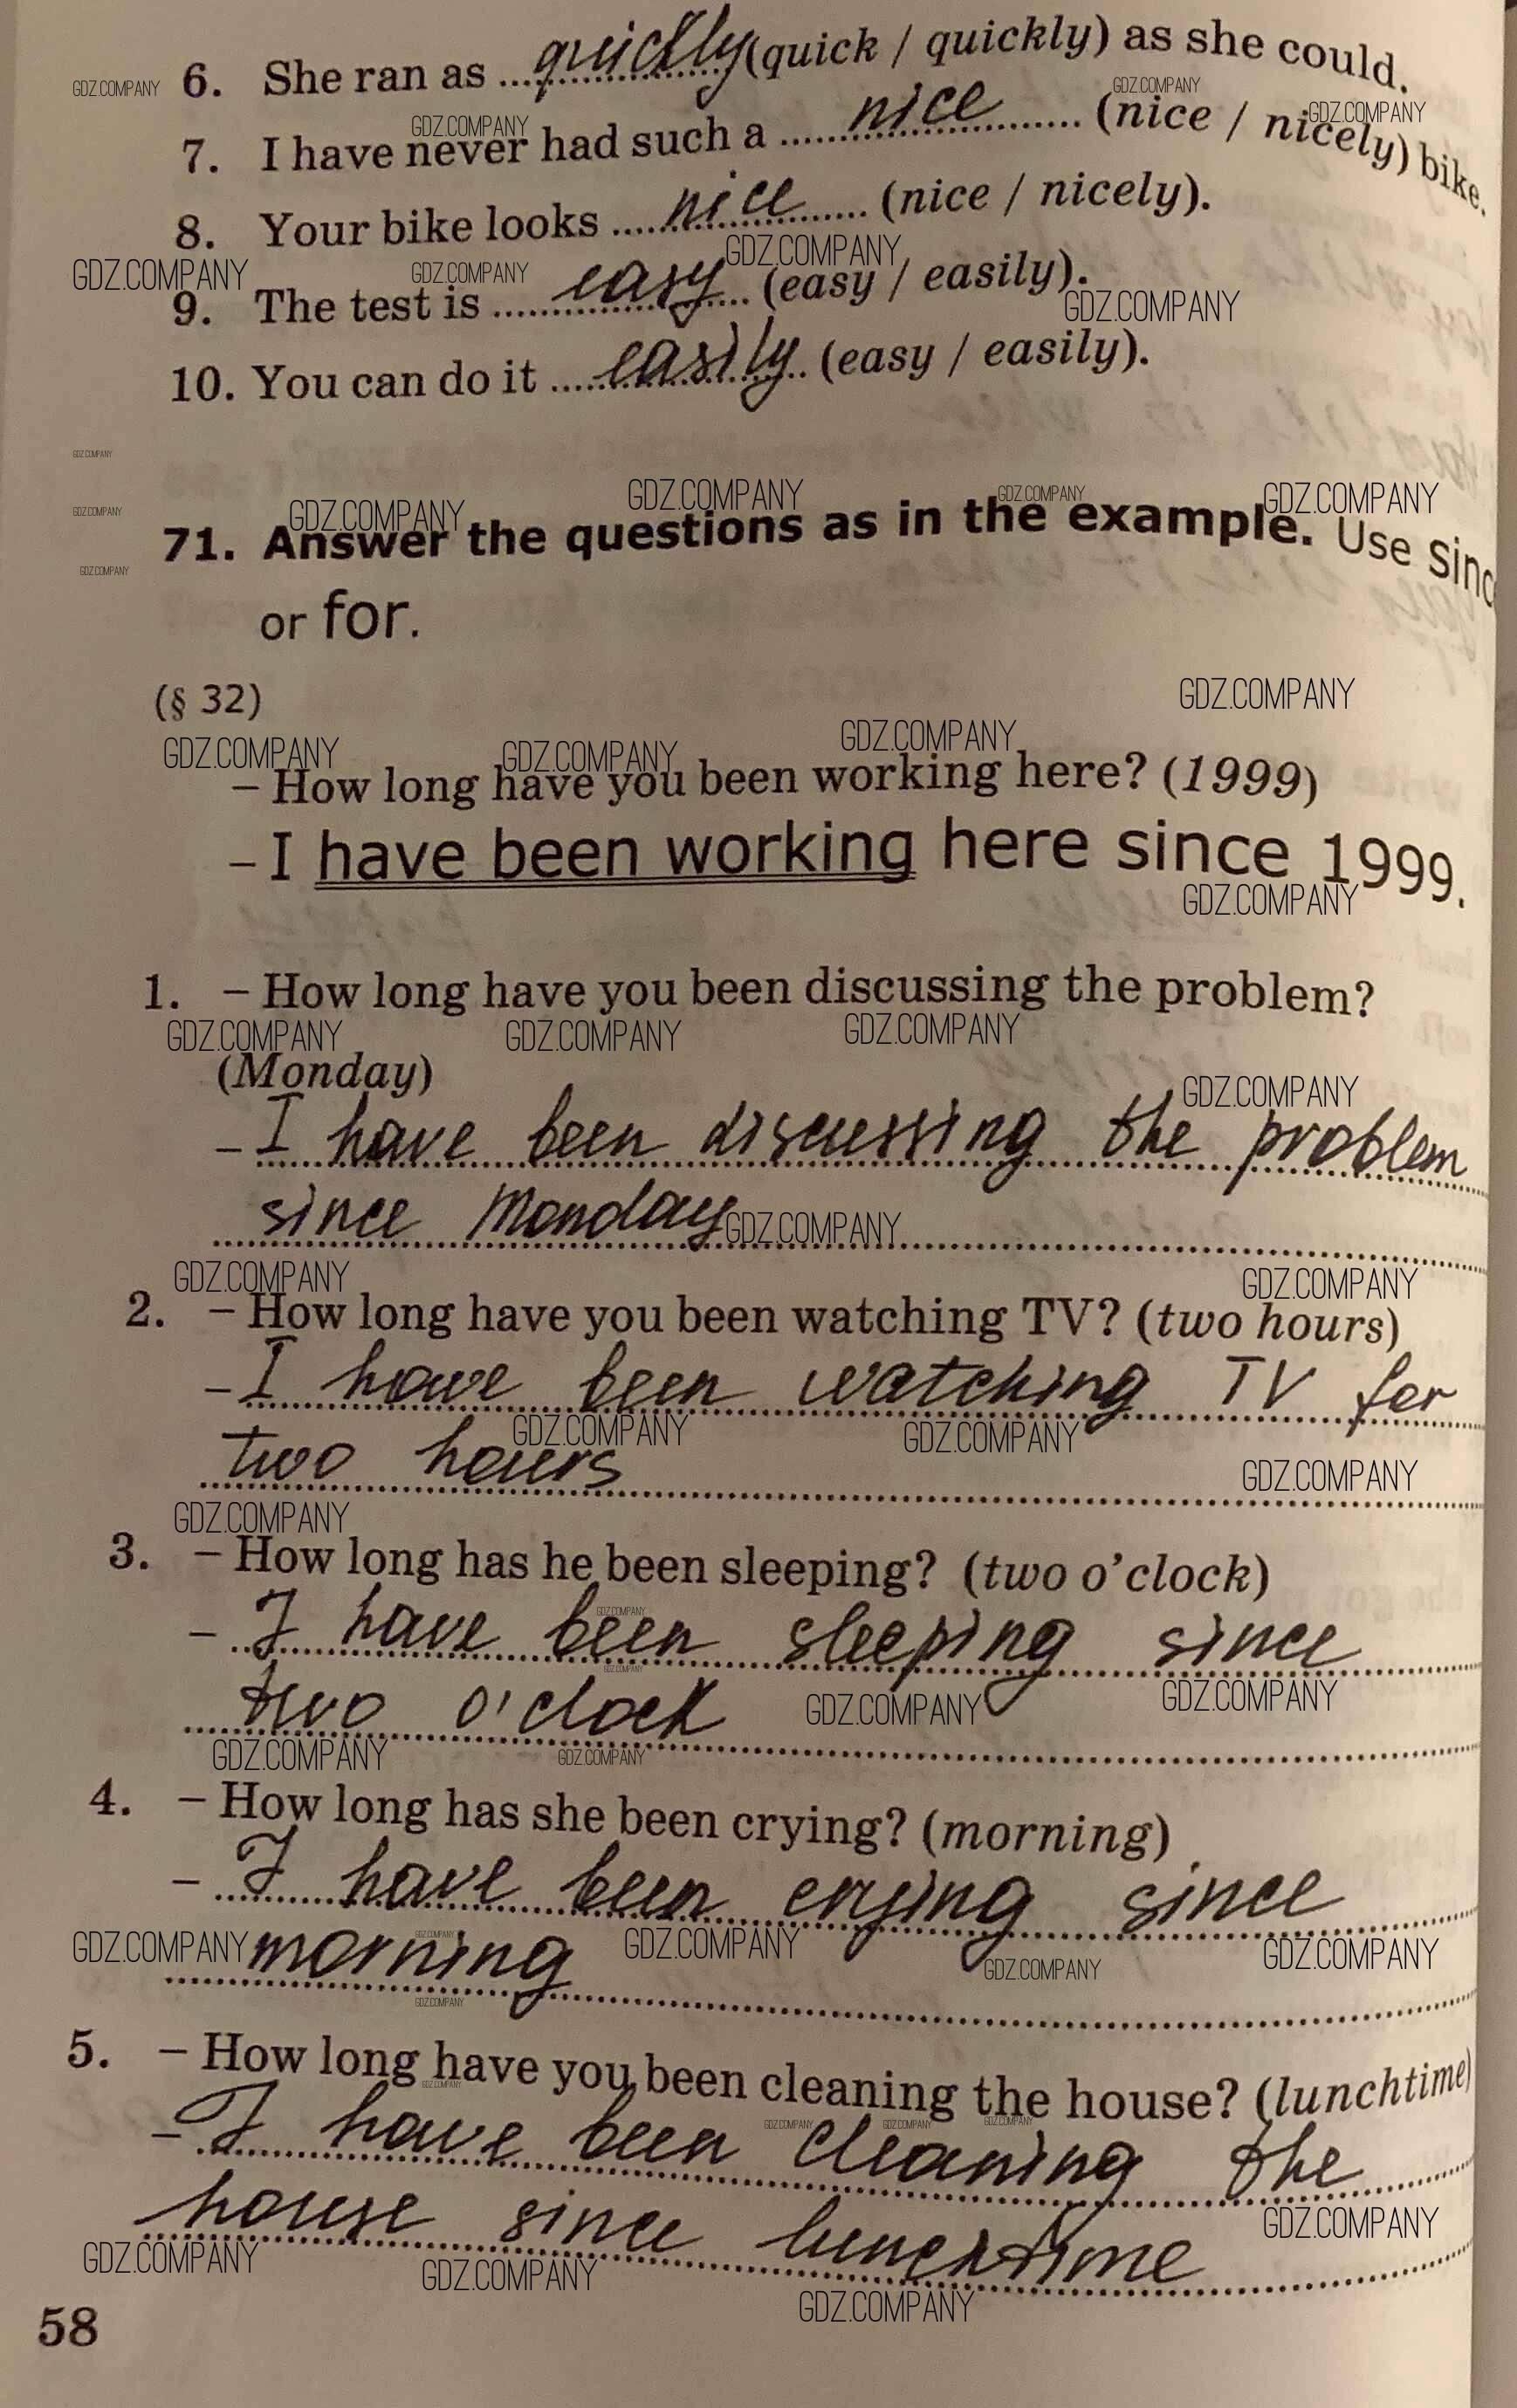 6. She ran as ...quickly (quick / quickly) as she could.
7. I have never had such a ...nice... (nice / nicely) bike.
8. Your bike looks ...nice... (nice / nicely).
9. The test is ...easy... (easy / easily).
10. You can do it ...easily... (easy / easily).
GDZ.COMPANY
71. Answer the questions as in the example. Use sinc
or for.
(§ 32)
– How long have you been working here? (1999)
– I have been working here since 1999.
1. – How long have you been discussing the problem?
(Monday)
– I have been discussing the problem
since Monday
2. – How long have you been watching TV? (two hours)
– I have been watching TV for
two hours
3. – How long has he been sleeping? (two o'clock)
– I have been sleeping since
two o'clock
4. – How long has she been crying? (morning)
– I have been crying since
morning
5. – How long have you been cleaning the house? (lunchtime)
– I have been cleaning the
house since lunchtime
58